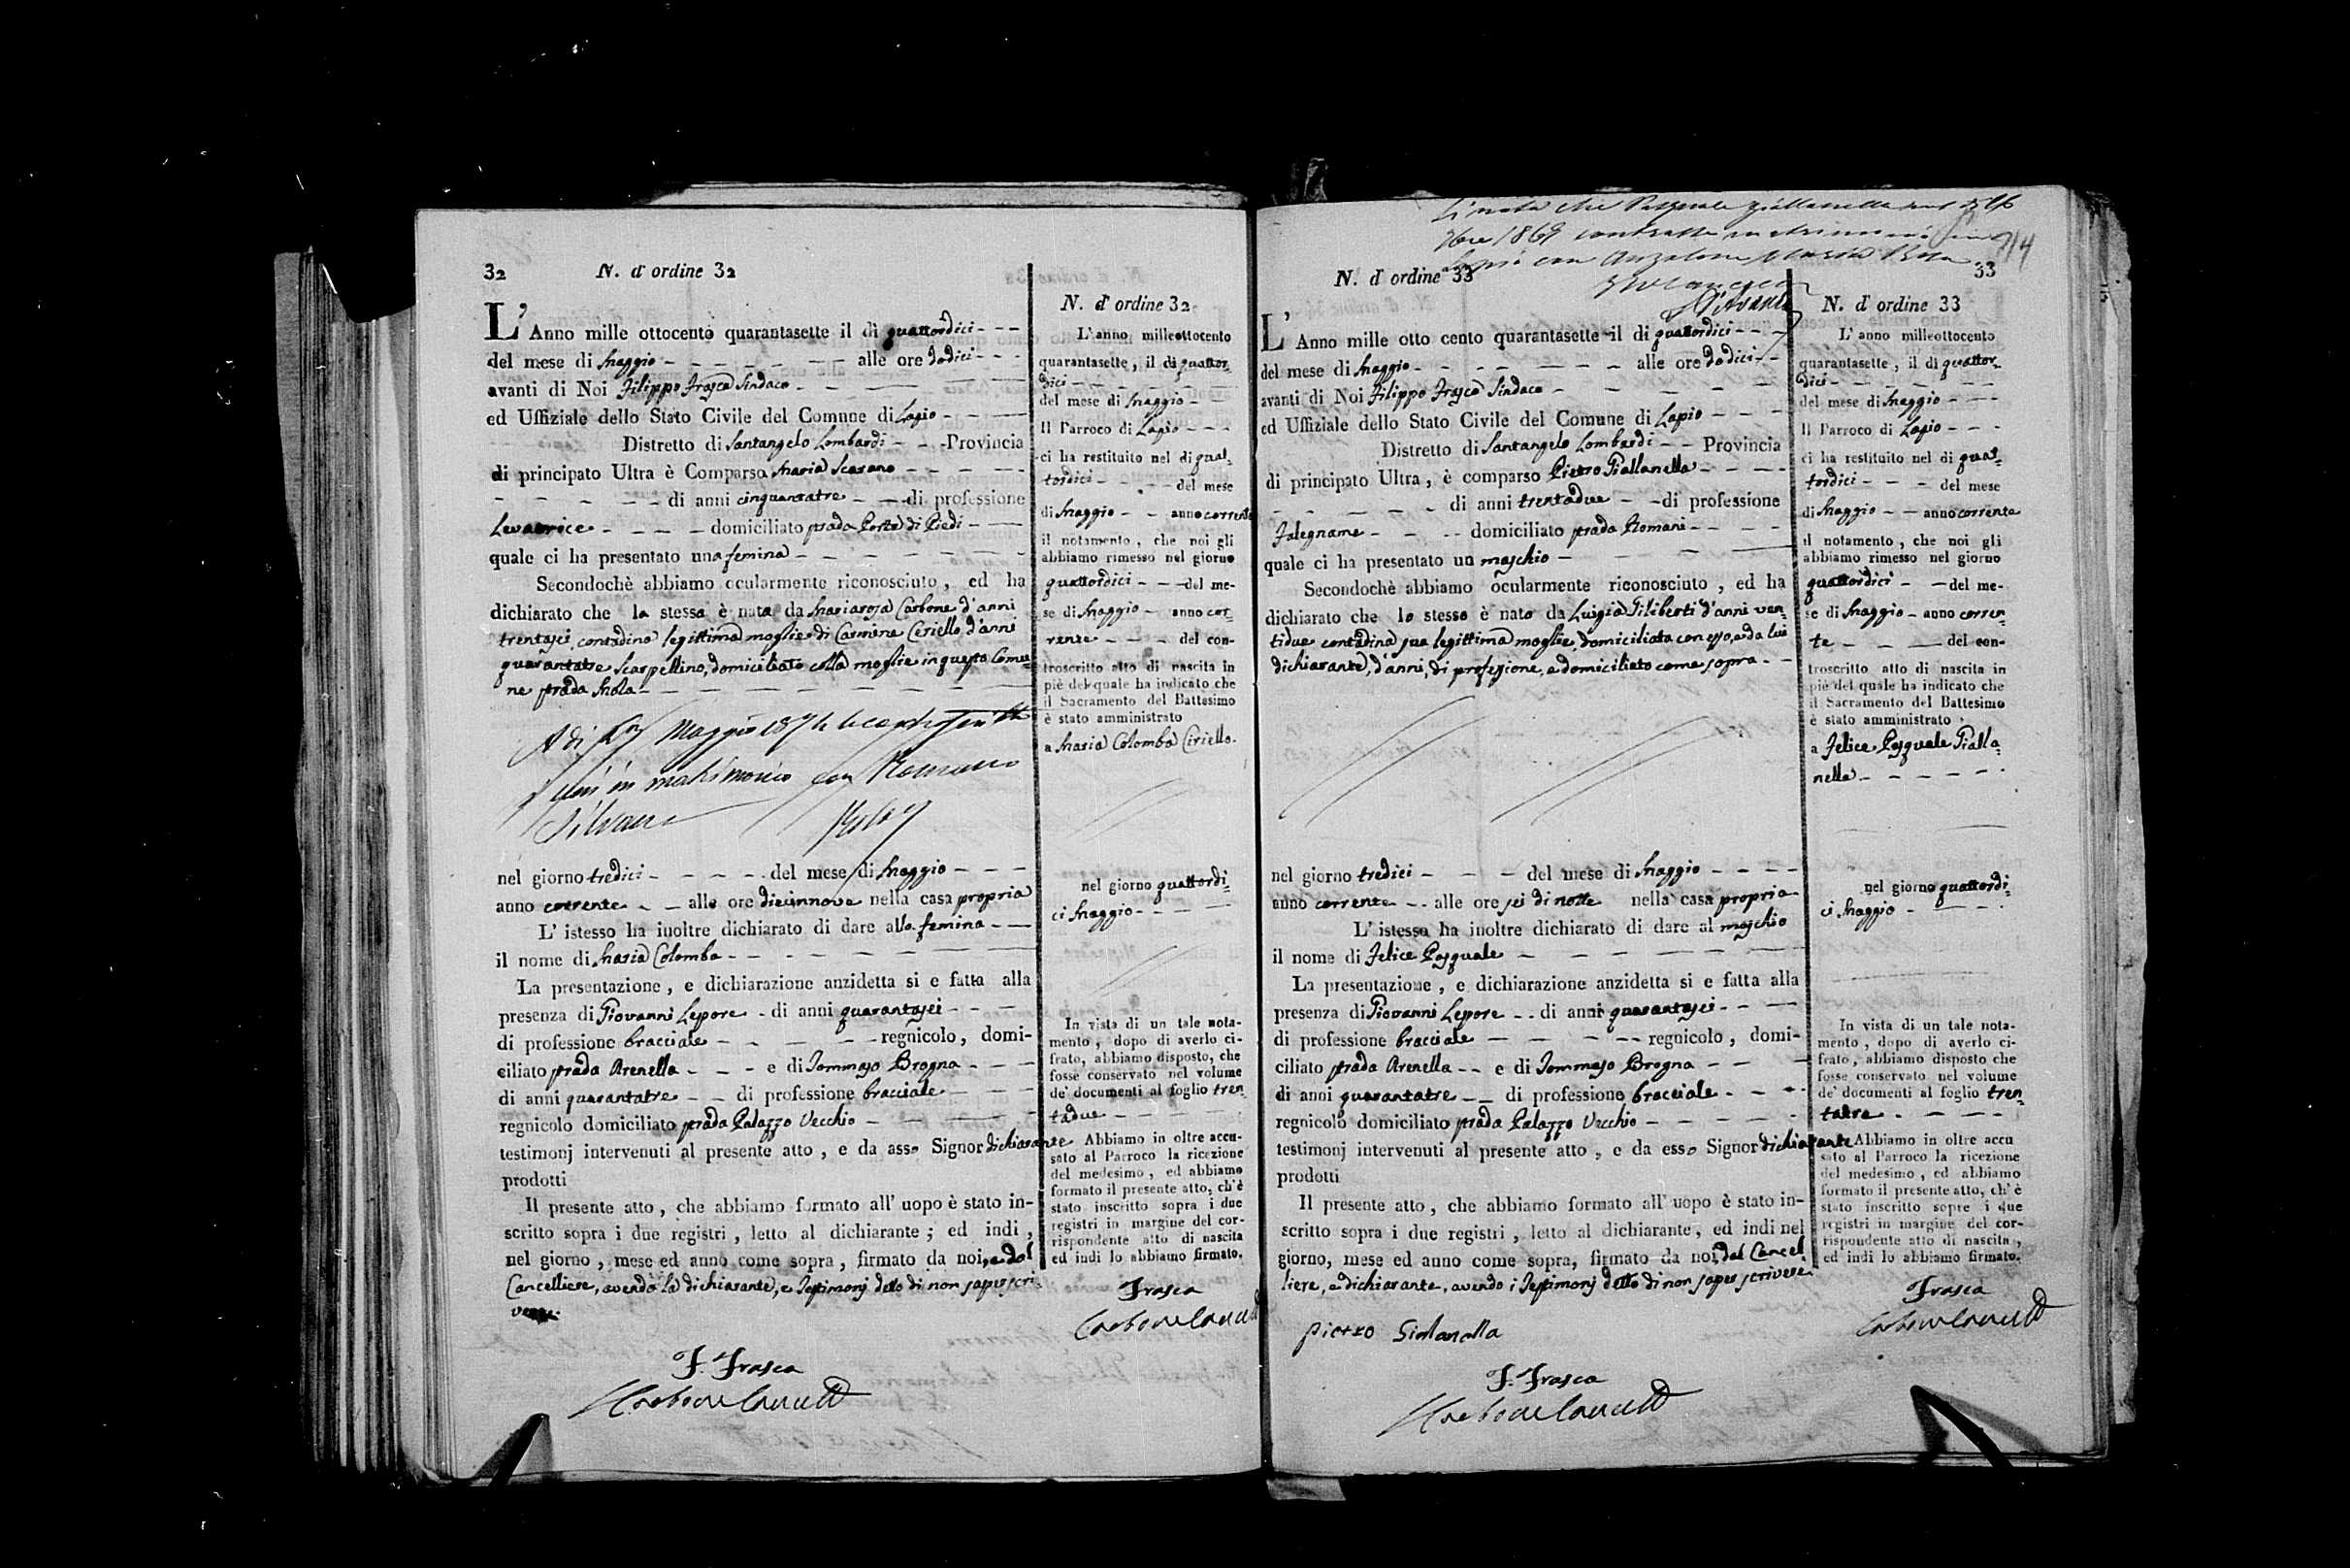 32
N. d' ordine 32
L' Anno mille ottocento quarantasette il dì quattordici
del mese di Maggio alle ore dodici
avanti di Noi Filippo Frasca Sindaco
ed Uffiziale dello Stato Civile del Comune di Lapio
Distretto di Santangelo Lombardi Provincia
di principato Ultra è Comparsa Maria Scarano
di anni cinquantatre di professione
Levatrice domiciliato strada Porta di Piedi
quale ci ha presentato una femina
Secondochè abbiamo ocularmente riconosciuto, ed ha
dichiarato che la stessa è nata da Mariarosa Carbone d'anni
trentasei contadina legittima moglie di Carmine Ceriello d'anni
quarantatre Scarpellino, domiciliato colla moglie in questo Comu=
ne strada Nola
A di Maggio 1874 la controscritta
si unì in matrimonio con Romano
Silvano
nel giorno tredici del mese di Maggio
anno corrente alle ore diecinnove nella casa propria
L' istesso ha inoltre dichiarato di dare alla femina
il nome di Maria Colomba
La presentazione, e dichiarazione anzidetta si e fatta alla
presenza di Giovanni Lepore di anni quarantasei
di professione bracciale regnicolo, domi-
ciliato strada Arenella e di Tommaso Brogna
di anni quarantatre di professione bracciale
regnicolo domiciliato strada Palazzo Vecchio
testimonj intervenuti al presente atto, e da asso Signor dichiarante
prodotti
Il presente atto, che abbiamo formato all' uopo è stato in-
scritto sopra i due registri, letto al dichiarante; ed indi,
nel giorno, mese ed anno come sopra, firmato da noi, e dal
Cancelliere, avendo la dichiarante, e Testimonj detto di non saper scri=
vere.
F. Frasca
Carbone Canc
N. d' ordine 32
L' anno milleottocento
quarantasette, il di quattor=
dici
del mese di Maggio
Il Parroco di Lapio
ci ha restituito nel di quat=
tordici del mese
di Maggio anno corrente
il notamento, che noi gli
abbiamo rimesso nel giorno
quattordici del me-
se di Maggio anno cor=
rente del con-
troscritto atto di nascita in
piè del quale ha indicato che
il Sacramento del Battesimo
è stato amministrato
a Maria Colomba Ciriello.
nel giorno quattordi=
ci Maggio
In vista di un tale nota-
mento, dopo di averlo ci-
frato, abbiamo disposto, che
fosse conservato nel volume
de' documenti al foglio tren
tadue
Abbiamo in oltre accu-
sato al Parroco la ricezione
del medesimo, ed abbiamo
formato il presente atto, ch'è
stato inscritto sopra i due
registri in margine del cor-
rispondente atto di nascita
ed indi lo abbiamo firmato.
Frasca
Carbone Canc
Si nota che Pasquale Giallanella
9bre 1869 contrasse matrimonio in
Lapio con Anzalone Maria Rosa
N. d' ordine 33
33
L' Anno mille otto cento quarantasette il di quattordici
del mese di Maggio alle ore dodici
avanti di Noi Filippo Frasca Sindaco
ed Uffiziale dello Stato Civile del Comune di Lapio
Distretto di Santangelo Lombardi Provincia
di principato Ultra, è comparso Pietro Giallanella
di anni trentadue di professione
Falegname domiciliato strada Romani
quale ci ha presentato un maschio
Secondochè abbiamo ocularmente riconosciuto, ed ha
dichiarato che lo stesso è nato da Luigia Giliberti d'anni ven=
tidue contadina sua legittima moglie, domiciliata con esso, e da lui
dichiarante, d'anni, di professione, e domiciliato come sopra
nel giorno tredici del mese di Maggio
anno corrente alle ore sei di notte nella casa propria
L' istesso ha inoltre dichiarato di dare al maschio
il nome di Felice Pasquale
La presentazione, e dichiarazione anzidetta si e fatta alla
presenza di Giovanni Lepore di anni quarantasei
di professione bracciale regnicolo, domi-
ciliato strada Arenella e di Tommaso Brogna
di anni quarantatre di professione bracciale
regnicolo domiciliato strada Palazzo Vecchio
testimonj intervenuti al presente atto, e da esso Signor dichiarante
prodotti
Il presente atto, che abbiamo formato all' uopo è stato in-
scritto sopra i due registri, letto al dichiarante, ed indi nel
giorno, mese ed anno come sopra, firmato da noi, dal Cancel
liere, e dichiarante, avendo i Testimonj detto di non saper scrivere
Pietro Gialanella
F. Frasca
Carbone Canc
N. d' ordine 33
L' anno milleottocento
quarantasette, il di quattor=
dici
del mese di Maggio
Il Parroco di Lapio
ci ha restituito nel di quat=
tordici del mese
di Maggio anno corrente
il notamento, che noi gli
abbiamo rimesso nel giorno
quattordici del me-
se di Maggio anno corren=
te del con-
troscritto atto di nascita in
piè del quale ha indicato che
il Sacramento del Battesimo
è stato amministrato
a Felice Pasquale Gialla=
nella
nel giorno quattordi=
ci Maggio
In vista di un tale nota-
mento, dopo di averlo ci-
frato, abbiamo disposto che
fosse conservato nel volume
de' documenti al foglio tren=
tatre
Abbiamo in oltre accu
sato al Parroco la ricezione
del medesimo, ed abbiamo
formato il presente atto, ch'è
stato inscritto sopra i due
registri in margine del cor-
rispondente atto di nascita,
ed indi lo abbiamo firmato.
Frasca
Carbone Canc